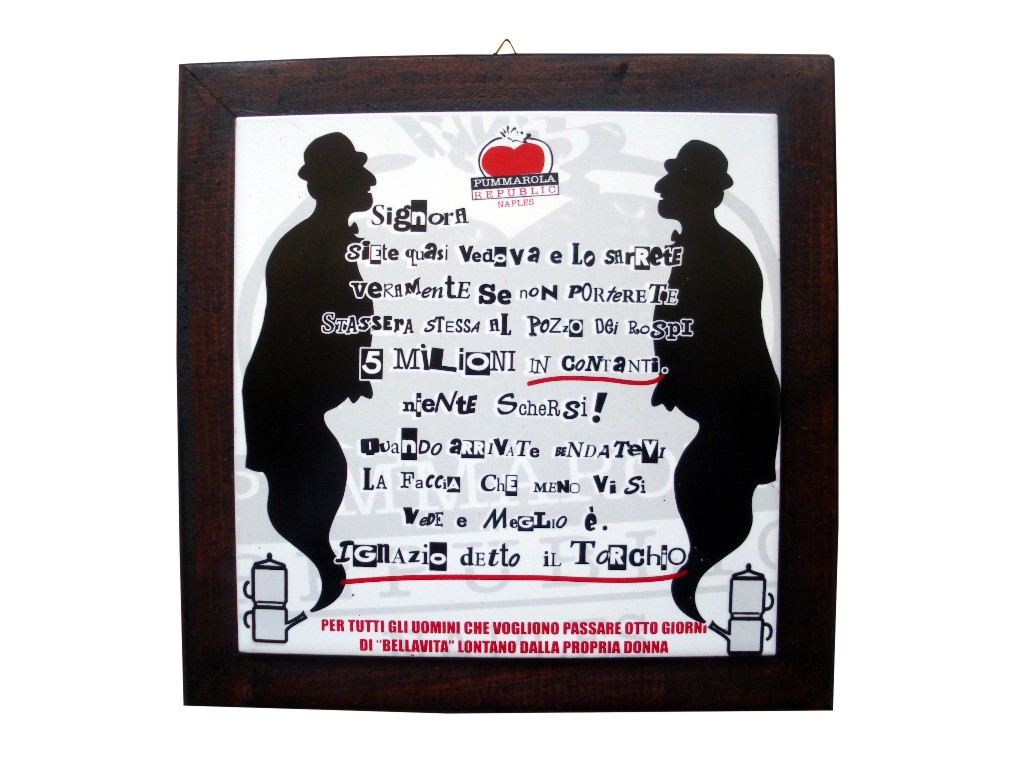 PUMMAROLA
REPUBLIC
NAPLES
Signora
siete quasi vedova e lo sarrete
veramente se non porterete
stassera stessa al pozzo dei rospi
5 milioni in contanti.
niente schersi!
quando arrivate bendatevi
la faccia che meno vi si
vede e meglio è.
Ignazio detto il Torchio
PER TUTTI GLI UOMINI CHE VOGLIONO PASSARE OTTO GIORNI
DI "BELLAVITA" LONTANO DALLA PROPRIA DONNA